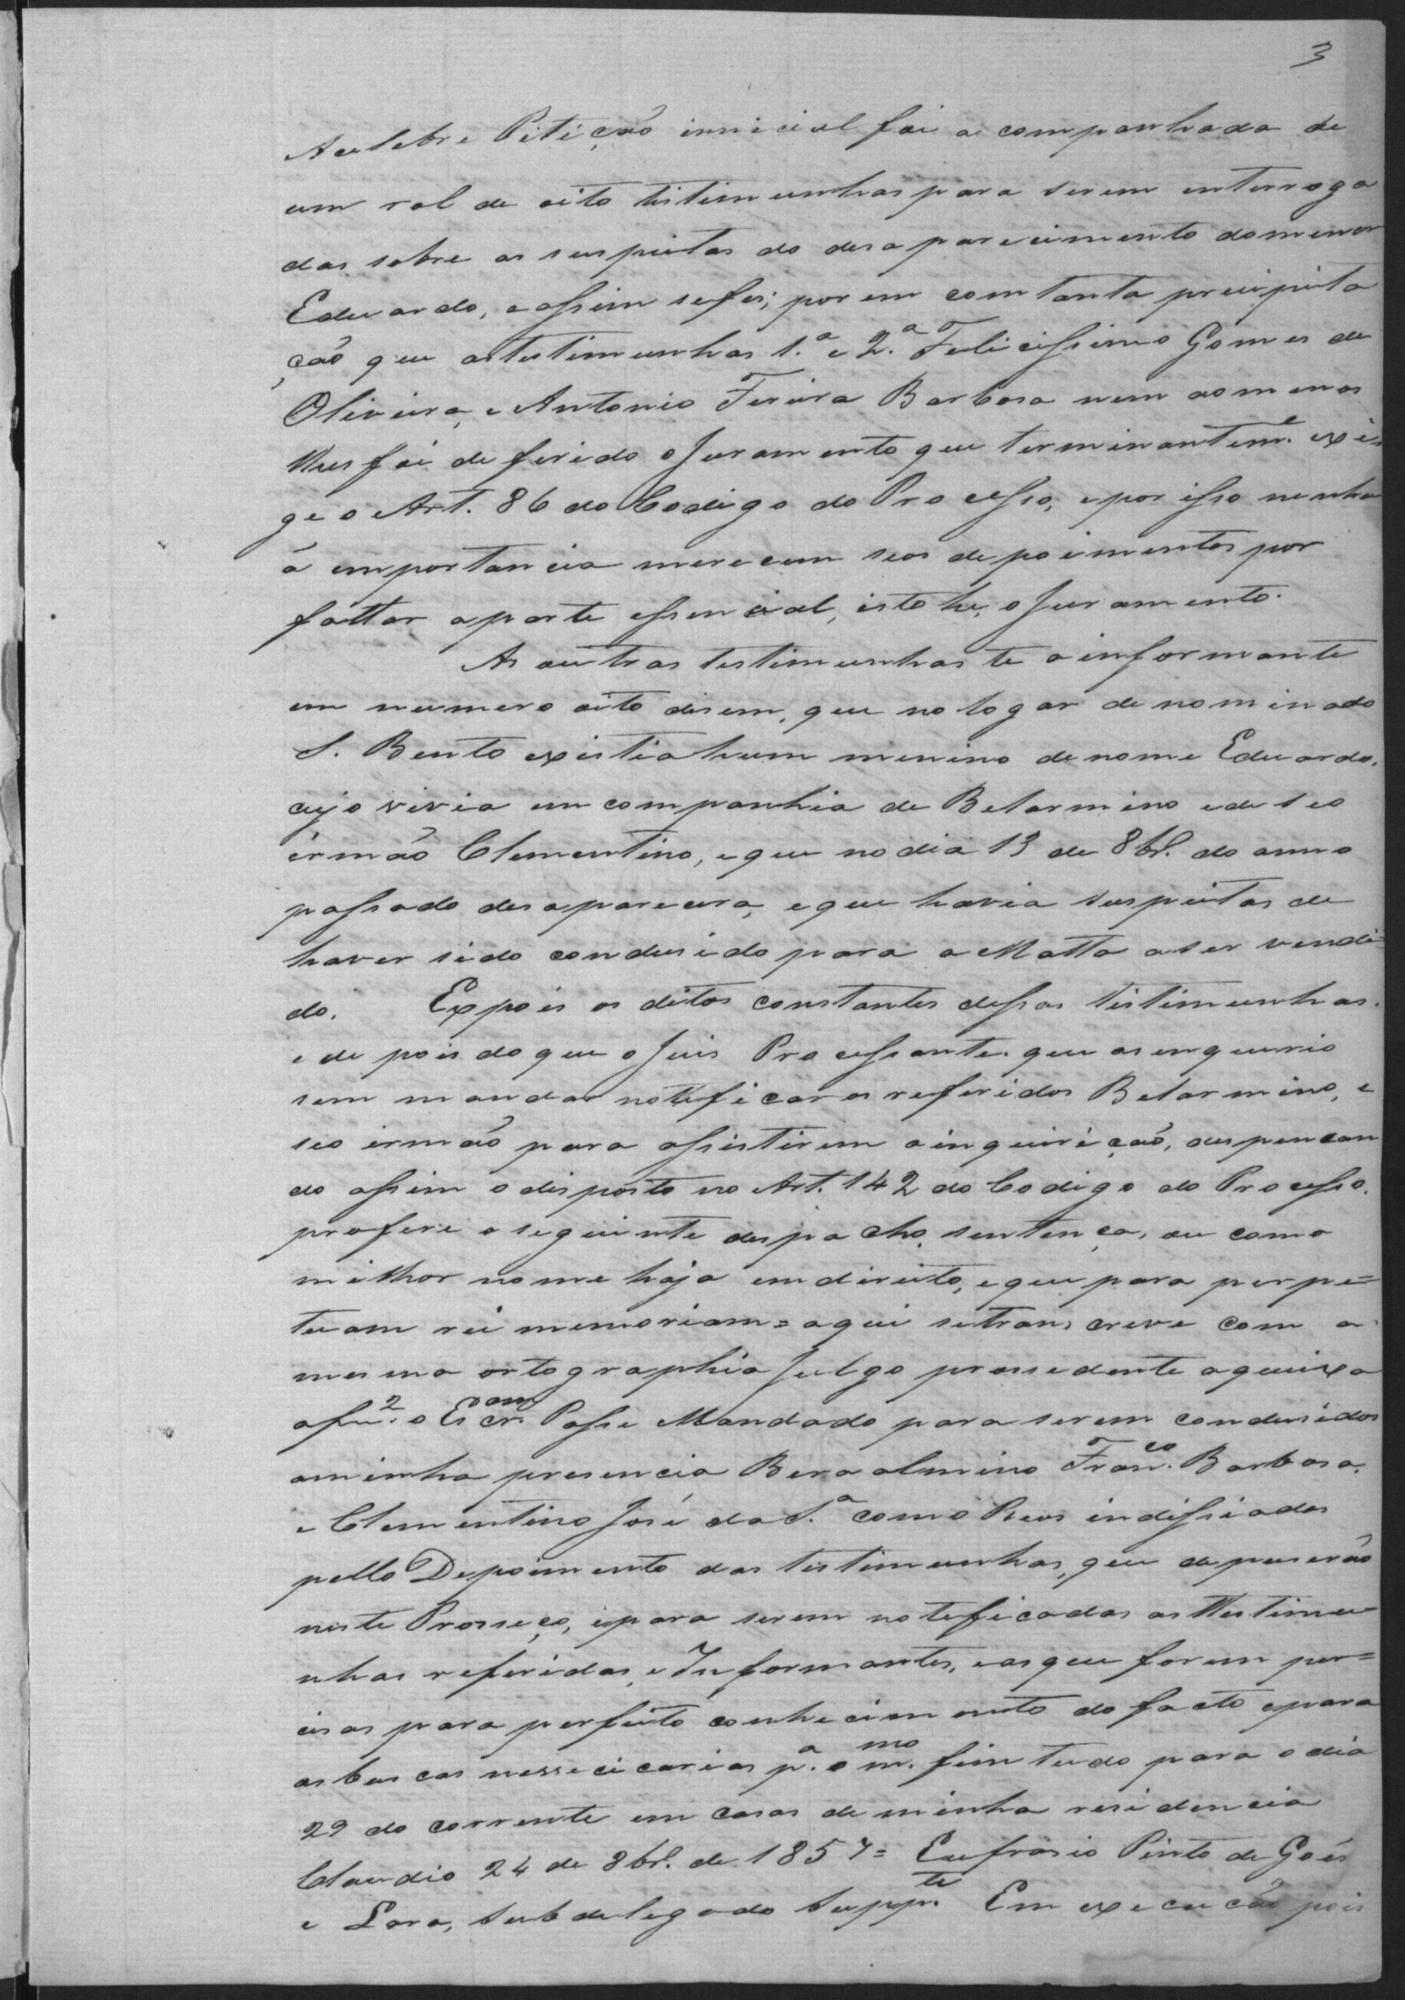 3
A celebre Pitição innicial foi acompanhada de
um rol de oito testimunhas para serem enterroga
das sobre as suspeitas do desaparecimento do menor
Eduardo, e assim se fes; porem com tanta precipita
ção que as testimunhas 1.ª e 2.ª Felicissimo Gomes de
Oliveira, e Antonio Fereira Barbosa nem ao menos
lhes foi deferido o Juramento que terminantem.e exi
ge o Art. 86 do Codigo do Processo, e por isso nenhu
a emportancia merecem seos depoimentos por
faltar a parte essencial, isto he, o Juramento.
As outras testimunhas te a informante
em numero oito disem, que no logar denominado
S. Bento existia hum menino de nome Eduardo,
cujo vivia em companhia de Belarmino e de seo
irmão Clementino, e que no dia 13 de 8br.o do anno
passado desaparecera, e que havia suspeitas de
haver sido condusido para a Matta a ser vendi
do. Expois os ditos constantes dessas testimunhas,
e de pois do que o Juis Processante que as enquerio
sem mandar notificar os referidos Belarmino, e
seo irmão para assistirem a inquirição, despençan
do assim o disposto no Art. 142 do Codigo do Processo,
profere o seguinte despacho, sentença, ou como
milhor nome haja em direito, e que para perpe=
tuam rei memoriam = aqui se transcreve com a
mesma ortographia Julgo prossedente a queixa
a fu2. o Escr.am Passe Mandado para serem condusidos
a minha presencia Beraalmino Fran.co Barbosa,
e Clementino José da S.a como Reos indissiados
pello Depoimento das testimunhas, que depuserão
neste Prosseço, e para serem noteficadas as testimu
nhas referidas, e Informantes, e as que forem per=
cisas para perfeito conhecimento do facto e para
as buscas nessecicarias p.a o m.mo fim tudo para o dia
29 do corrente em casas de minha residencia
Claudio 24 de 8br.o de 1857 = Eufrasio Pinto de Goes
e Lara, subdelegado Supp.te Em execução pois